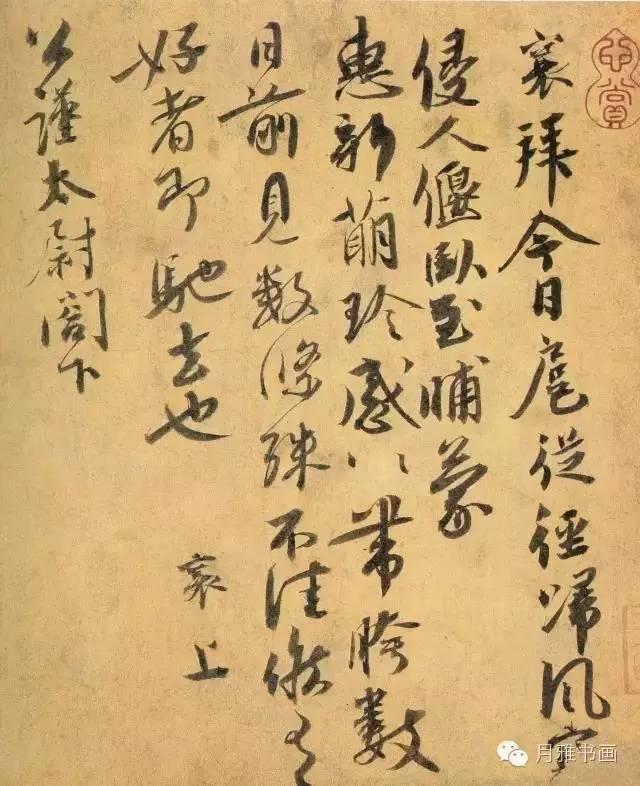 襄拜今日扈從徑歸風寒
侵人偃臥至晡蒙
惠新萌珍感珍感帶胯數
日前見數條殊不佳候有
好者即馳去也
襄上
公謹太尉閤下
月雅书画